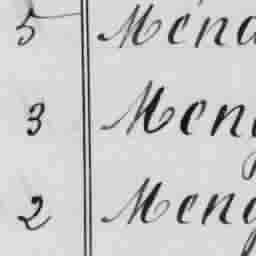 5 Mén
3 Men
2 Meng